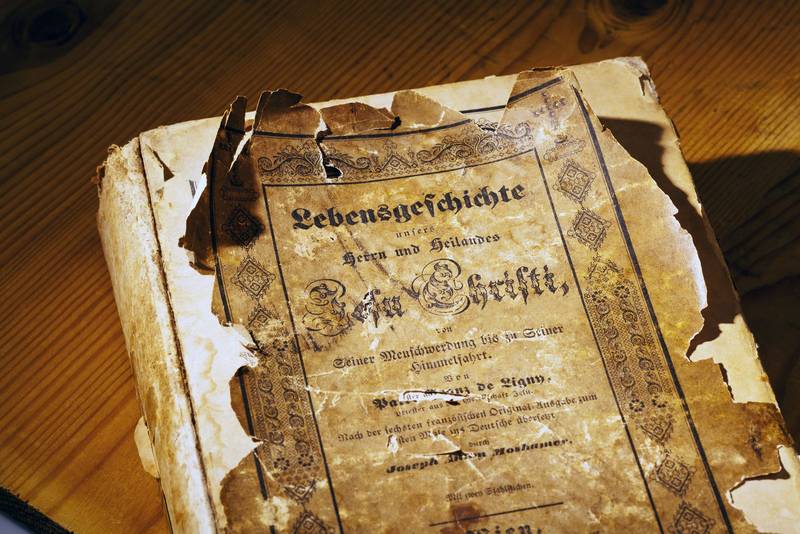 Lebensgeschichte
unsers
Herrn und Heilandes
Jesu Christi,
von
Seiner Menschwerdung bis zu Seiner
Himmelfahrt.
Von
Pater Franz de Ligny,
Priester aus der Gesellschaft Jesu.
Nach der sechsten französischen Original-Ausgabe zum
Male ins Deutsche übersetzt
durch
Joseph Moshamer.
Mit zwey Stahlstichen.
Wien,